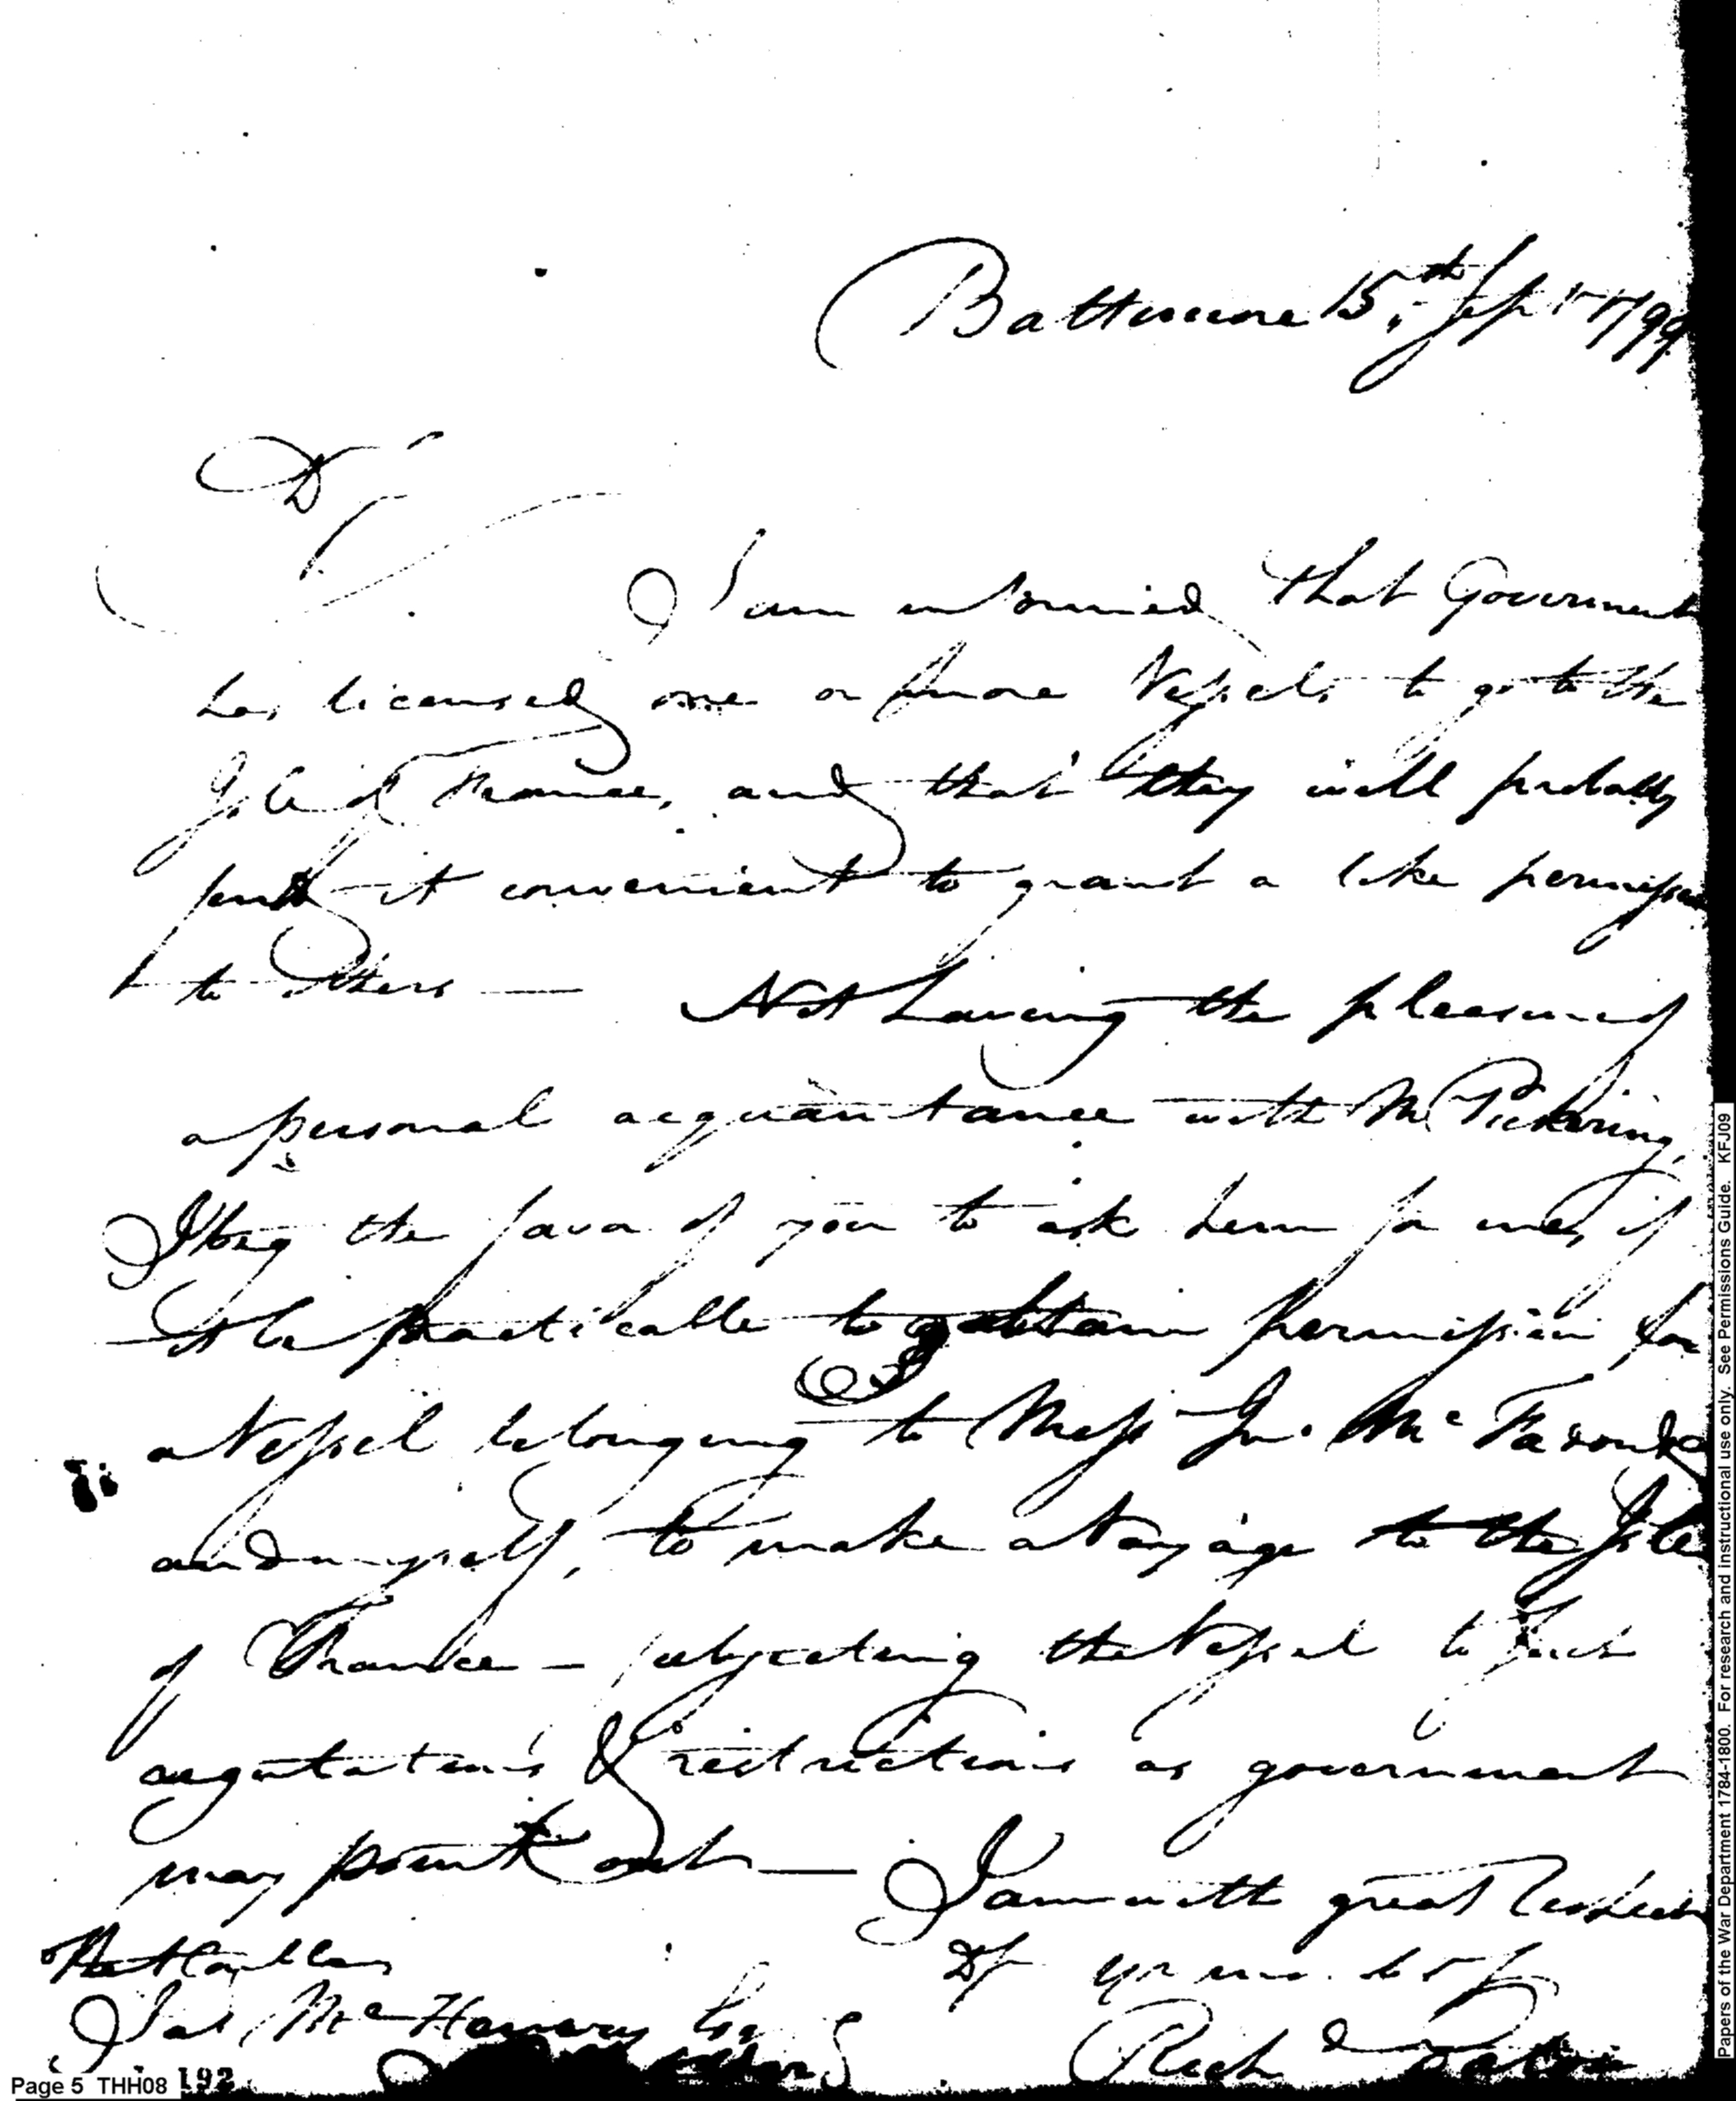 Baltimore 15th. Sept 1799
Dr Sir
I am informed that Government
has licensed one or more Vessels to go to the
Isle of France, and that they will probably
find it convenient to grant a like permission
to others — Not having the pleasure of
a personal acquaintance with Mr. Pickering,
I beg the favor of you to ask him for me, if
it be practicable to obtain permission for
a Vessel belonging to Messrs Jno. Mc
and myself, to make a Voyage to the Isle
of France — subjecting the Vessel to such
regulations & restrictions as government
may point out — I am with great respect
The Honble
Dr Sir yr mo. ob st
Jas McHenry Esq
Richd
Page 5 THH08 192
Papers of the War Department 1784-1800. For research and instructional use only. See Permissions Guide. KFJ09